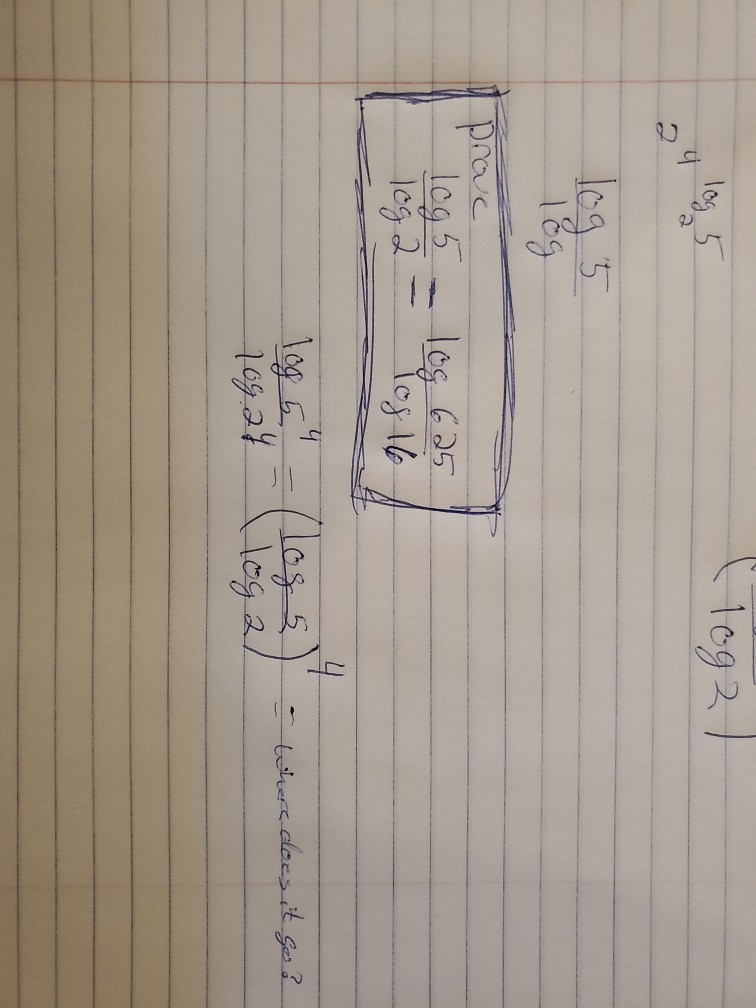 (
log 2 )
2^4 log_2 5
log 5
log
prove
log 5 / log 2 = log 625 / log 16
log 5^4 / log 2^4 = (log 5 / log 2)^4 = where does it go?